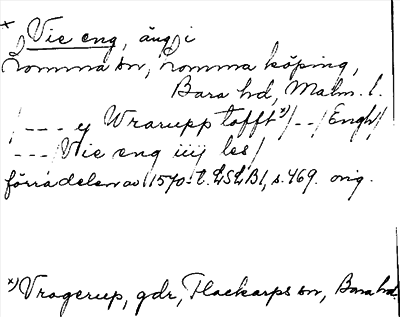 x) Vie eng, äng, i
Lomma sn, Lomma köping,
Bara hd, Malm. l.
/--- y Wrarupp tofft x)/--/Engh/
---/Vie eng iiij les/
förra delen av 1570-t. LSLB1, s. 469. orig.
x) Vragerup, gdr, Flackarps sn, Bara hd.